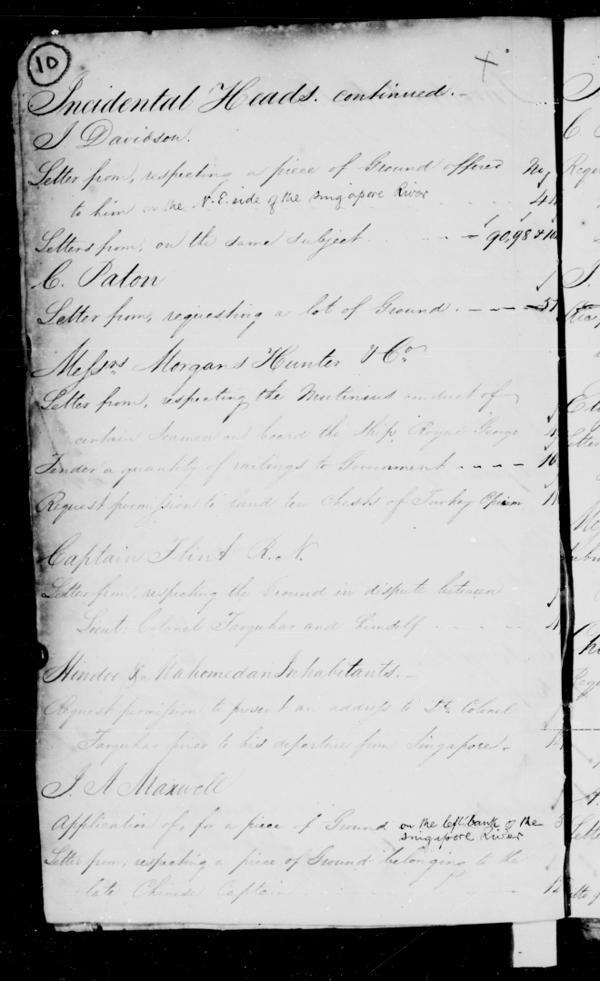 10
Incidental Heads. continued.
J Davidson.
Letter from, respecting a piece of Ground offered No
to him on the N. E. side of the Singapore River
Letters from, on the same subject 90, 98 &
C. Paton
Letter from, requesting a lot of Ground.
Messrs Morgans Hunter & Co.
Letter from, respecting the Mutinous conduct of
certain Seamen on board the Ship Royal George
Tender a quantity of railings to Government
Request permission to land ten Chests of Turkey Opium
Captain Flint R. N.
Letter from, respecting the Ground in dispute between
Lieut. Colonel Farquhar and himself
Hindoo & Mahomedan Inhabitants.
Request permission to present an address to Lt. Colonel
Farquhar prior to his departure from Singapore.
J. A Maxwell
Application of, for a piece of Ground on the left bank of the
Singapore River
Letter from, respecting a piece of Ground belonging to the
late Chinese Captain